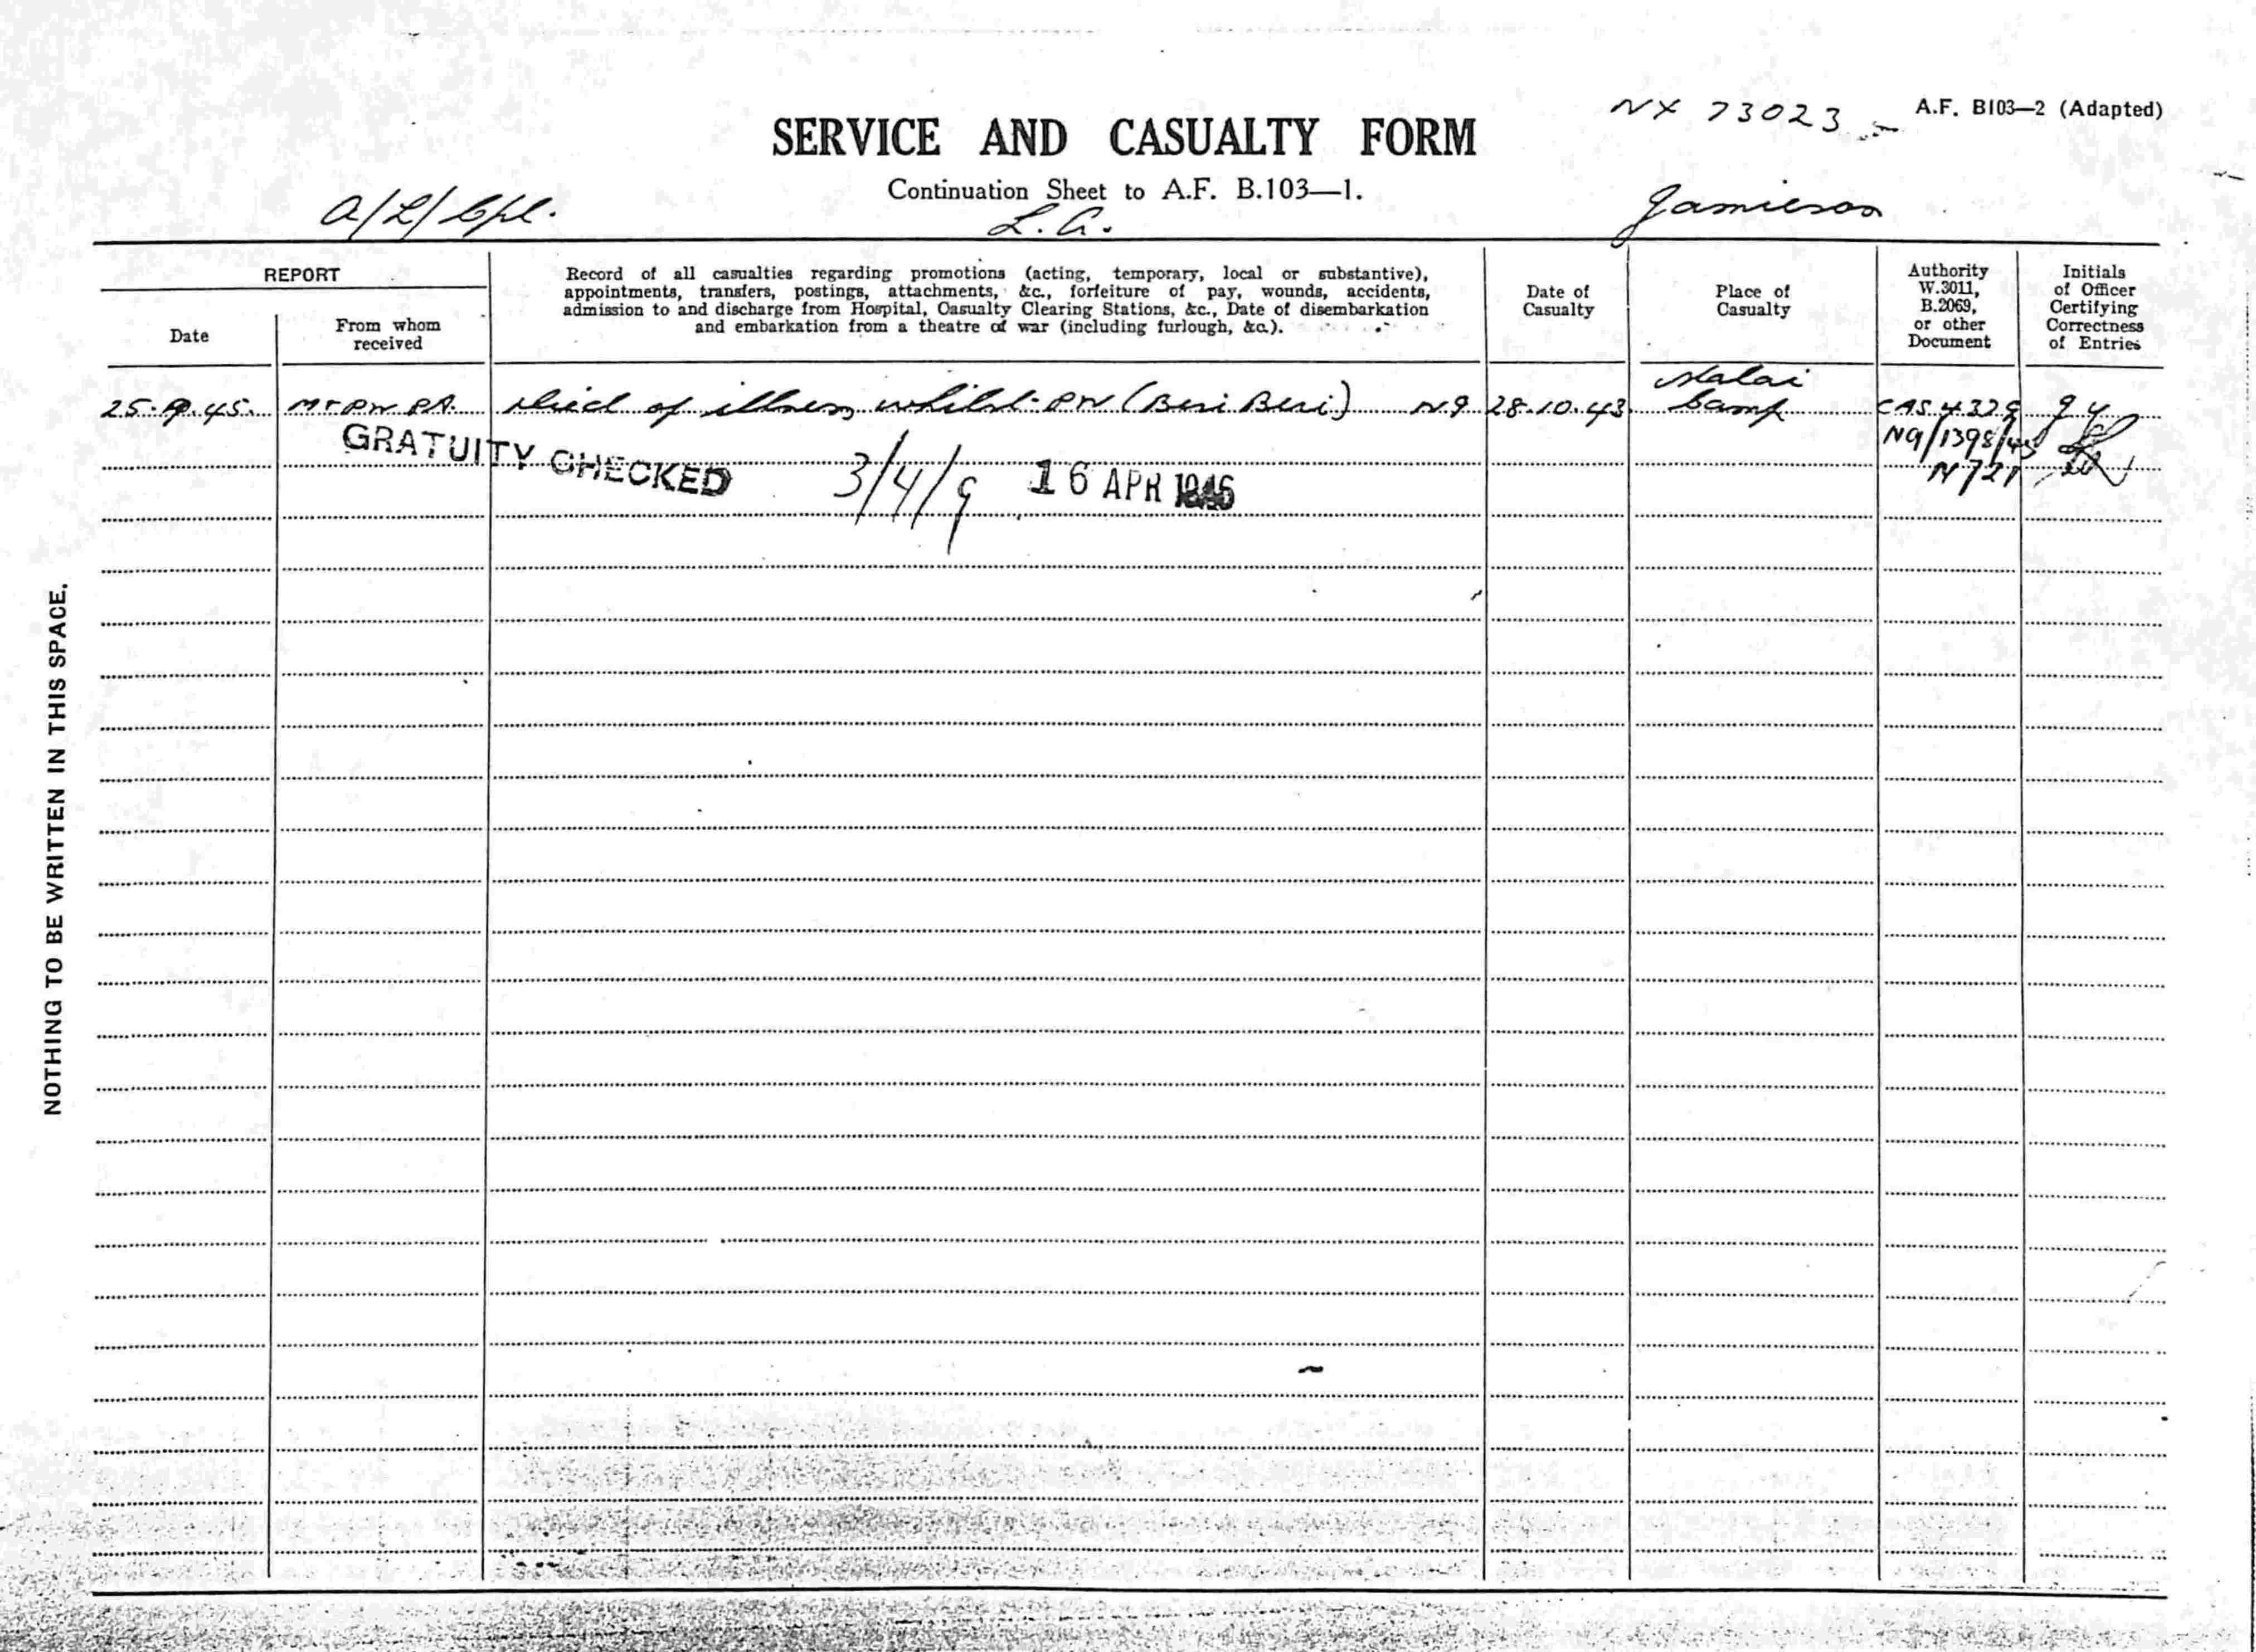 NX 73023
A.F. B103—2 (Adapted)
SERVICE AND CASUALTY FORM
Continuation Sheet to A.F. B.103—1.
A/L/Cpl. L. G. Jamieson
REPORT
Date
From whom
received
Record of all casualties regarding promotions (acting, temporary, local or substantive),
appointments, transfers, postings, attachments, &c., forfeiture of pay, wounds, accidents,
admission to and discharge from Hospital, Casualty Clearing Stations, &c., Date of disembarkation
and embarkation from a theatre of war (including furlough, &c.).
Date of
Casualty
Place of
Casualty
Authority
W.3011,
B.2069,
or other
Document
Initials
of Officer
Certifying
Correctness
of Entries
25.9.45. died of illness whilst PW (Beri Beri) N9 28.10.43 Malai
Camp CAS 4329
N9/1398/45
N721
GRATUITY CHECKED 3/4/9 16 APR 1946
NOTHING TO BE WRITTEN IN THIS SPACE.